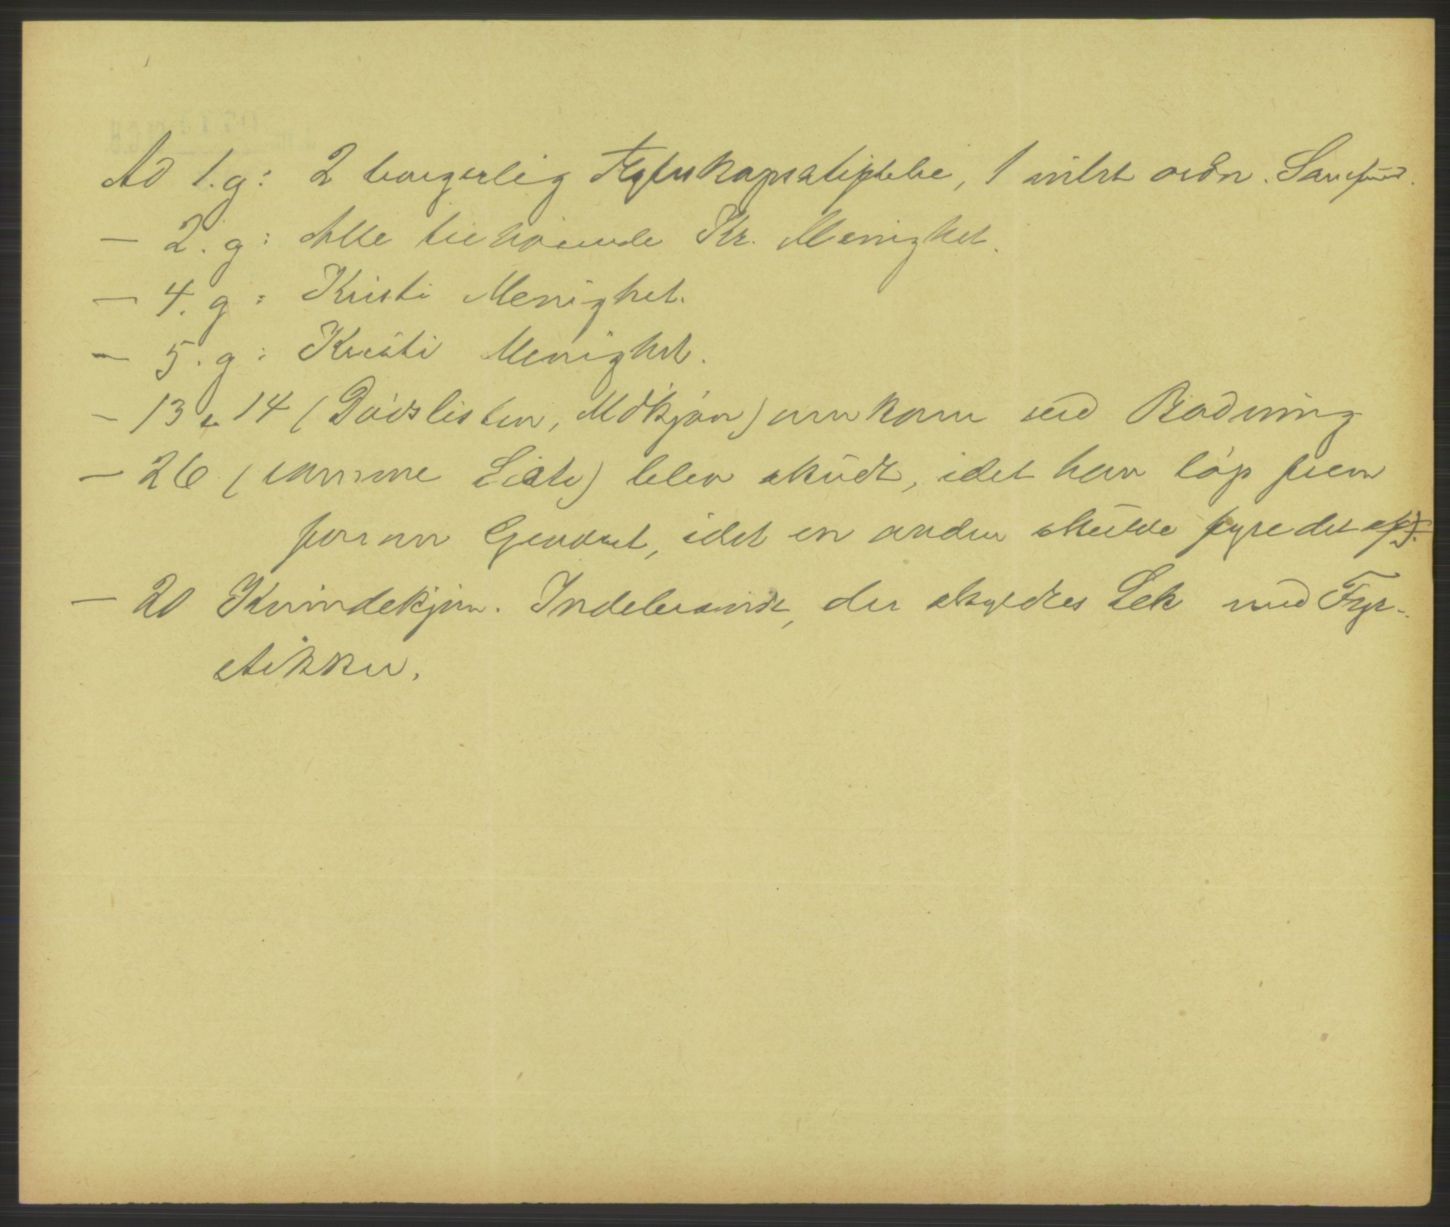 Ad 1.g: 2 borgerlig Ægteskapsstiftelse, 1 ordn. Samfund.
— 2.g: Alle tilhørende Kr. Menighet.
— 4.g: Kristi Menighet.
— 5.g: Kristi Menighet.
— 13 & 14 (Dødslisten, Mdkjøn) omkom ved Badning
— 26 (samme Liste) blev skudt, idet han løp frem
foran Geværet, idet en anden skulde fyre det af).
— 20 Kvindekjøn. Indebrændt, der skyldtes Lek med Fyr-
stikker.